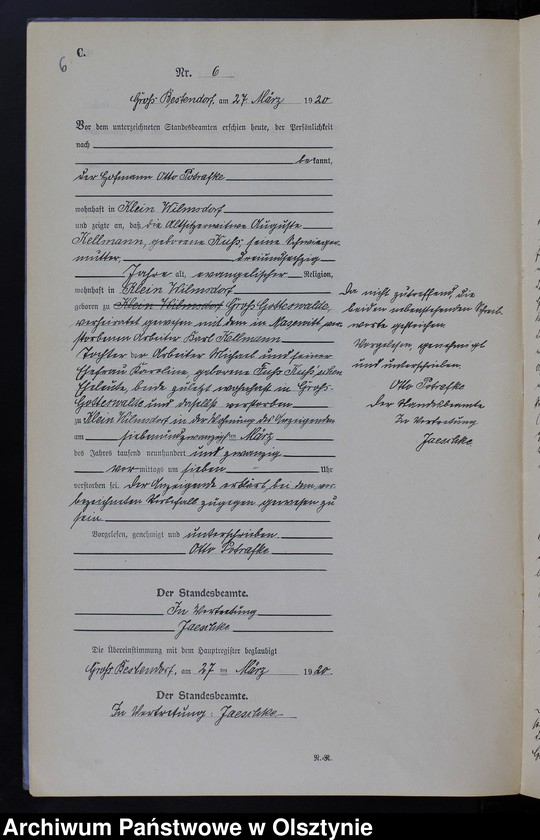 6
C.
Nr. 6
Groß Bestendorf, am 27 März 1920
Vor dem unterzeichneten Standesbeamten erschien heute, der Persönlichkeit
nach
bekannt,
der Hofmann Otto Potrafke
wohnhaft in Klein Wilmsdorf
und zeigte an, daß die Altsitzerwitwe Auguste
Kellmann, geborene Kuhs, seine Schwieger-
mutter, dreiundsechzig
Jahre alt, evangelischer Religion,
wohnhaft in Klein Wilmsdorf
geboren zu Klein Wilmsdorf Groß Gotteswalde,
verheiratet gewesen mit dem in ver-
storbenen Arbeiter Karl Kellmann
Tochter der Arbeiter Michael und seiner
Ehefrau Karoline, geborene
Eheleute, beide zuletzt wohnhaft in Groß-
Gotteswalde und daselbst verstorben
zu Klein Wilmsdorf in der Wohnung des Anzeigenden
am siebenundzwanzigsten März
des Jahres tausend neunhundert und zwanzig
vormittags um sieben Uhr
verstorben sei. Der Anzeigende erklärt, bei dem vor-
bezeichneten Sterbefall zugegen gewesen zu
sein.
Vorgelesen, genehmigt und unterschrieben.
Otto Potrafke
Der Standesbeamte.
In Vertretung
Jaeschke
Die Übereinstimmung mit dem Hauptregister beglaubigt
Groß Bestendorf, am 27 ten März 1920
Der Standesbeamte.
In Vertretung: Jaeschke
Da nicht zutreffend, die
beiden nebenstehenden
worte gestrichen.
Vorgelesen, genehmigt
und unterschrieben.
Otto Potrafke
Der Standesbeamte
In Vertretung
Jaeschke
Archiwum Państwowe w Olsztynie